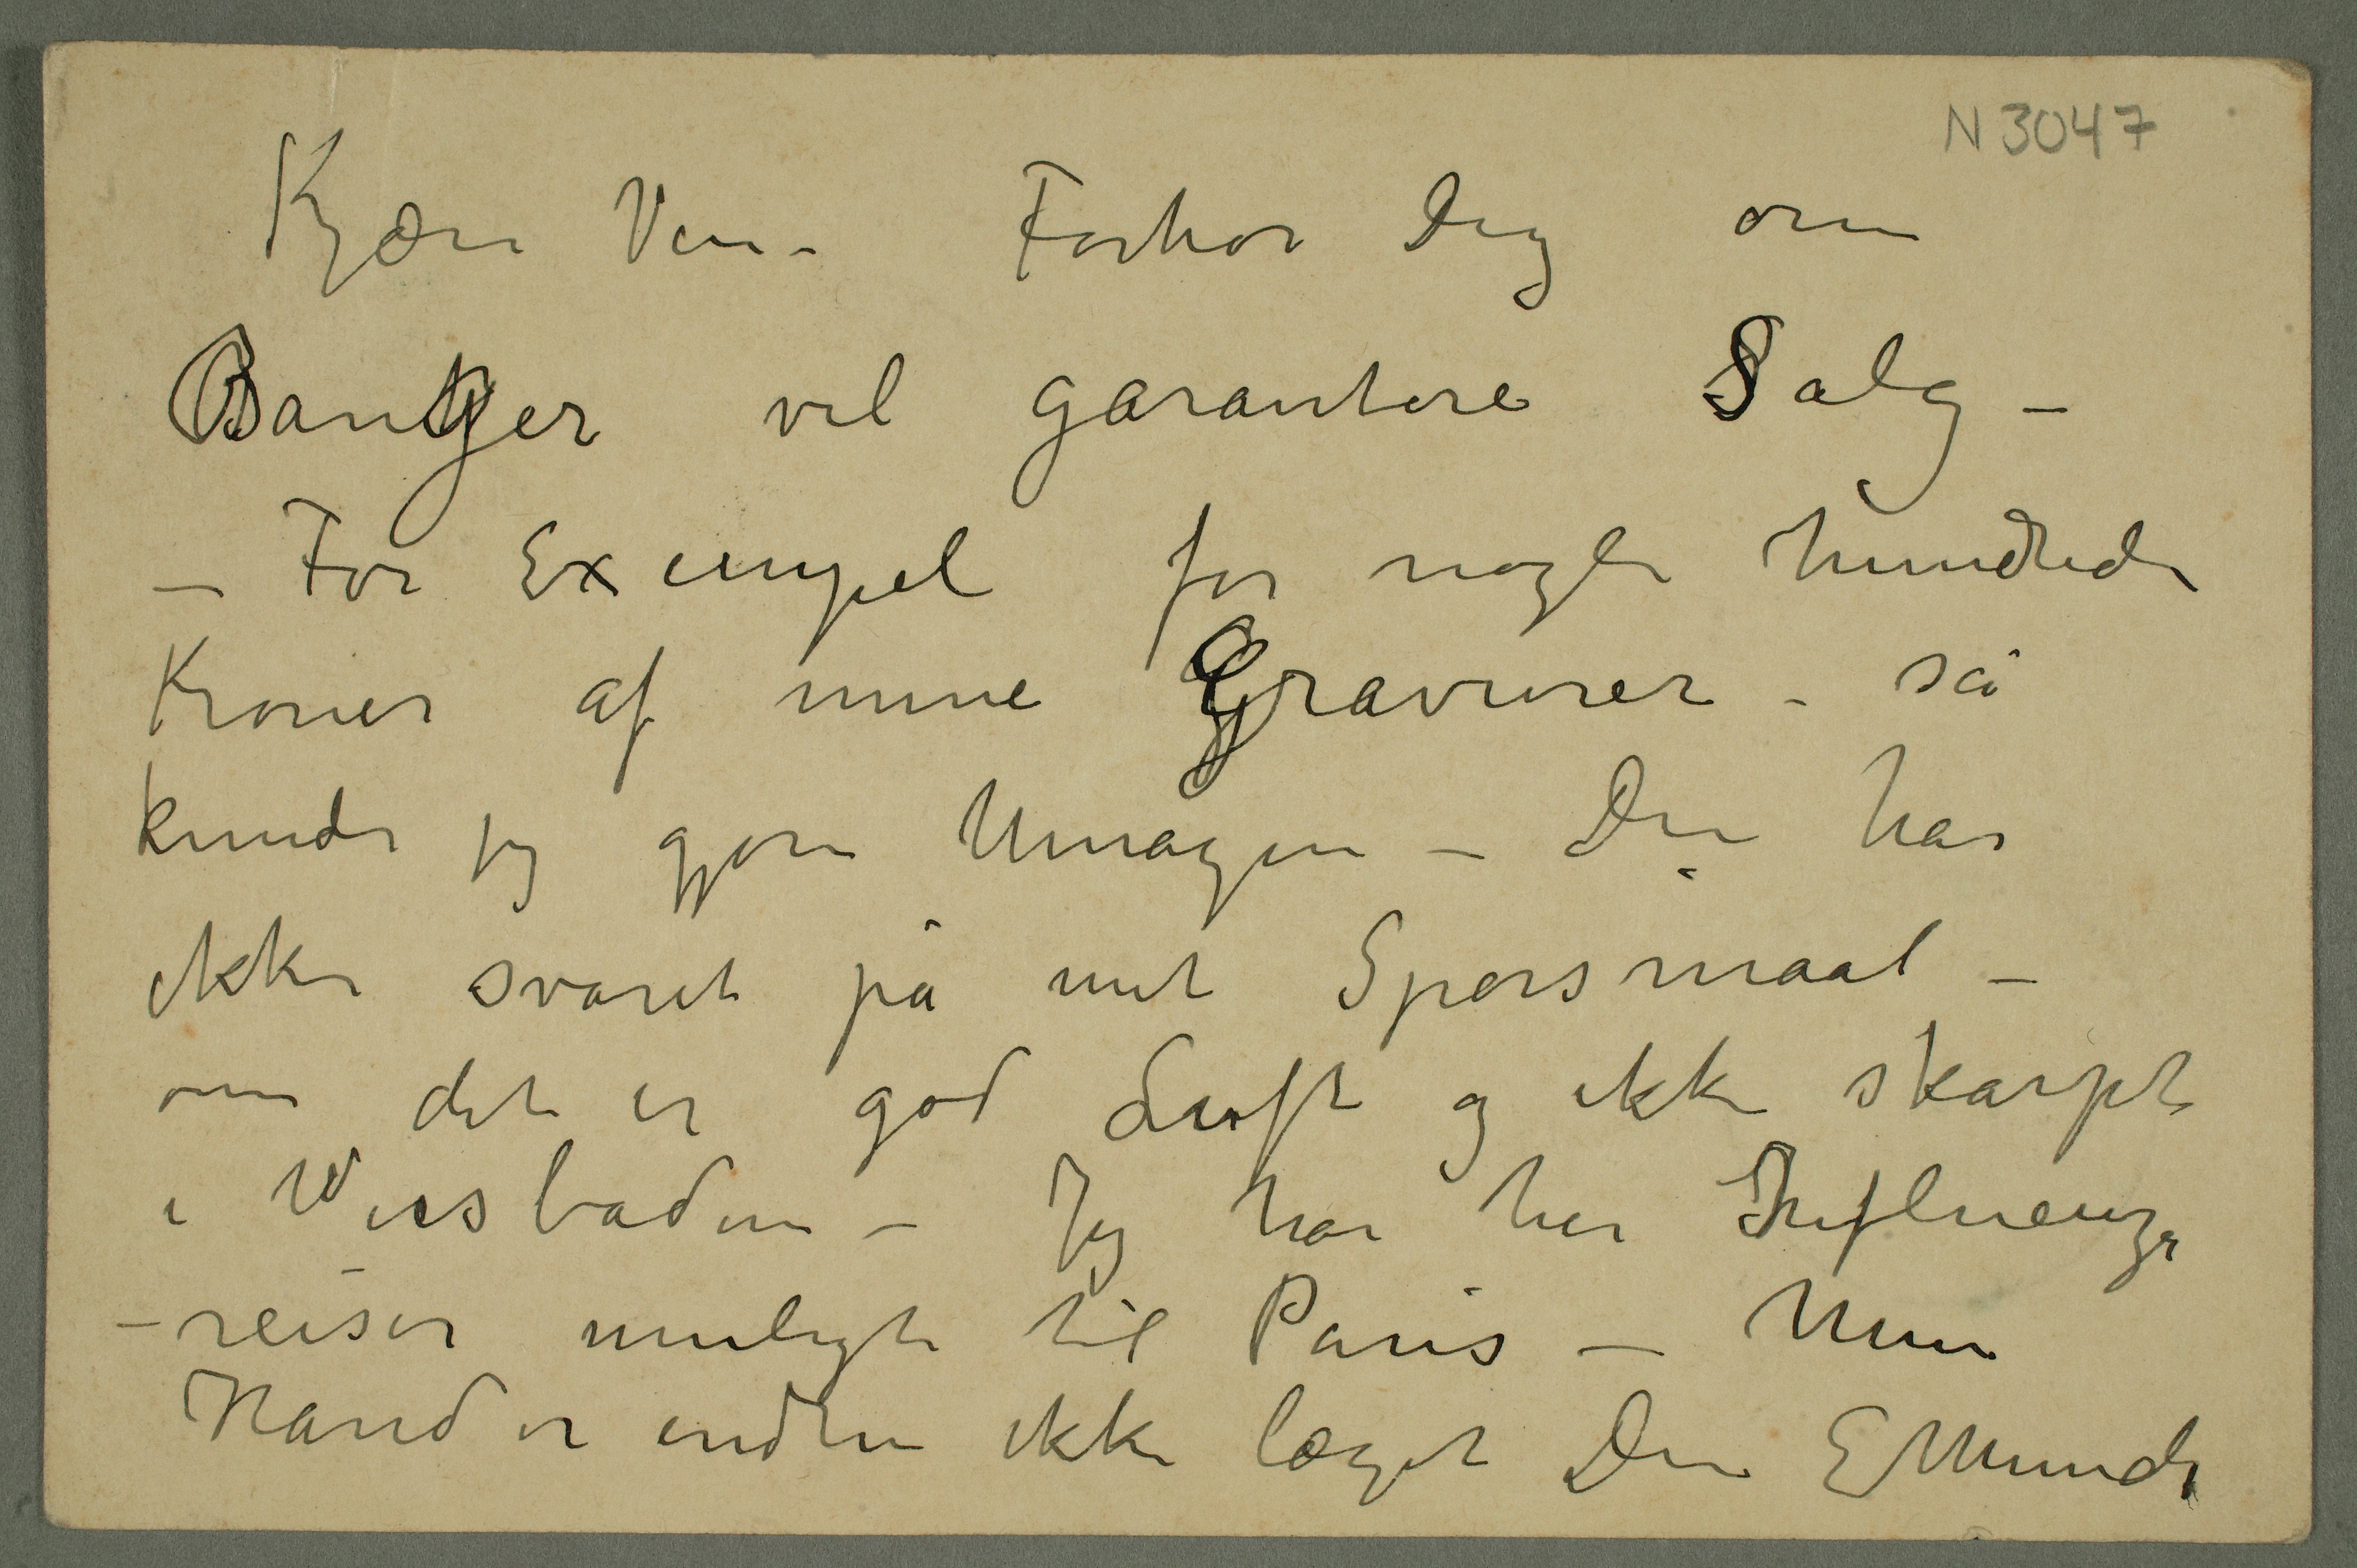 N 3047
Kjære Ven – Forhør Dig om
Banger vil garantere Salg –
– For Exempel for nogle hundrede
Kroner af mine Gravurer – så
kunde jeg gjøre Umagen – Du har
ikke svaret på mit Spørsmaal –
om det er god Luft og ikke skarpt
i Wiesbaden – Jeg har her Influenza
– reiser muligt til Paris – Min
Hånd er endnu ikke læget Din E Munch